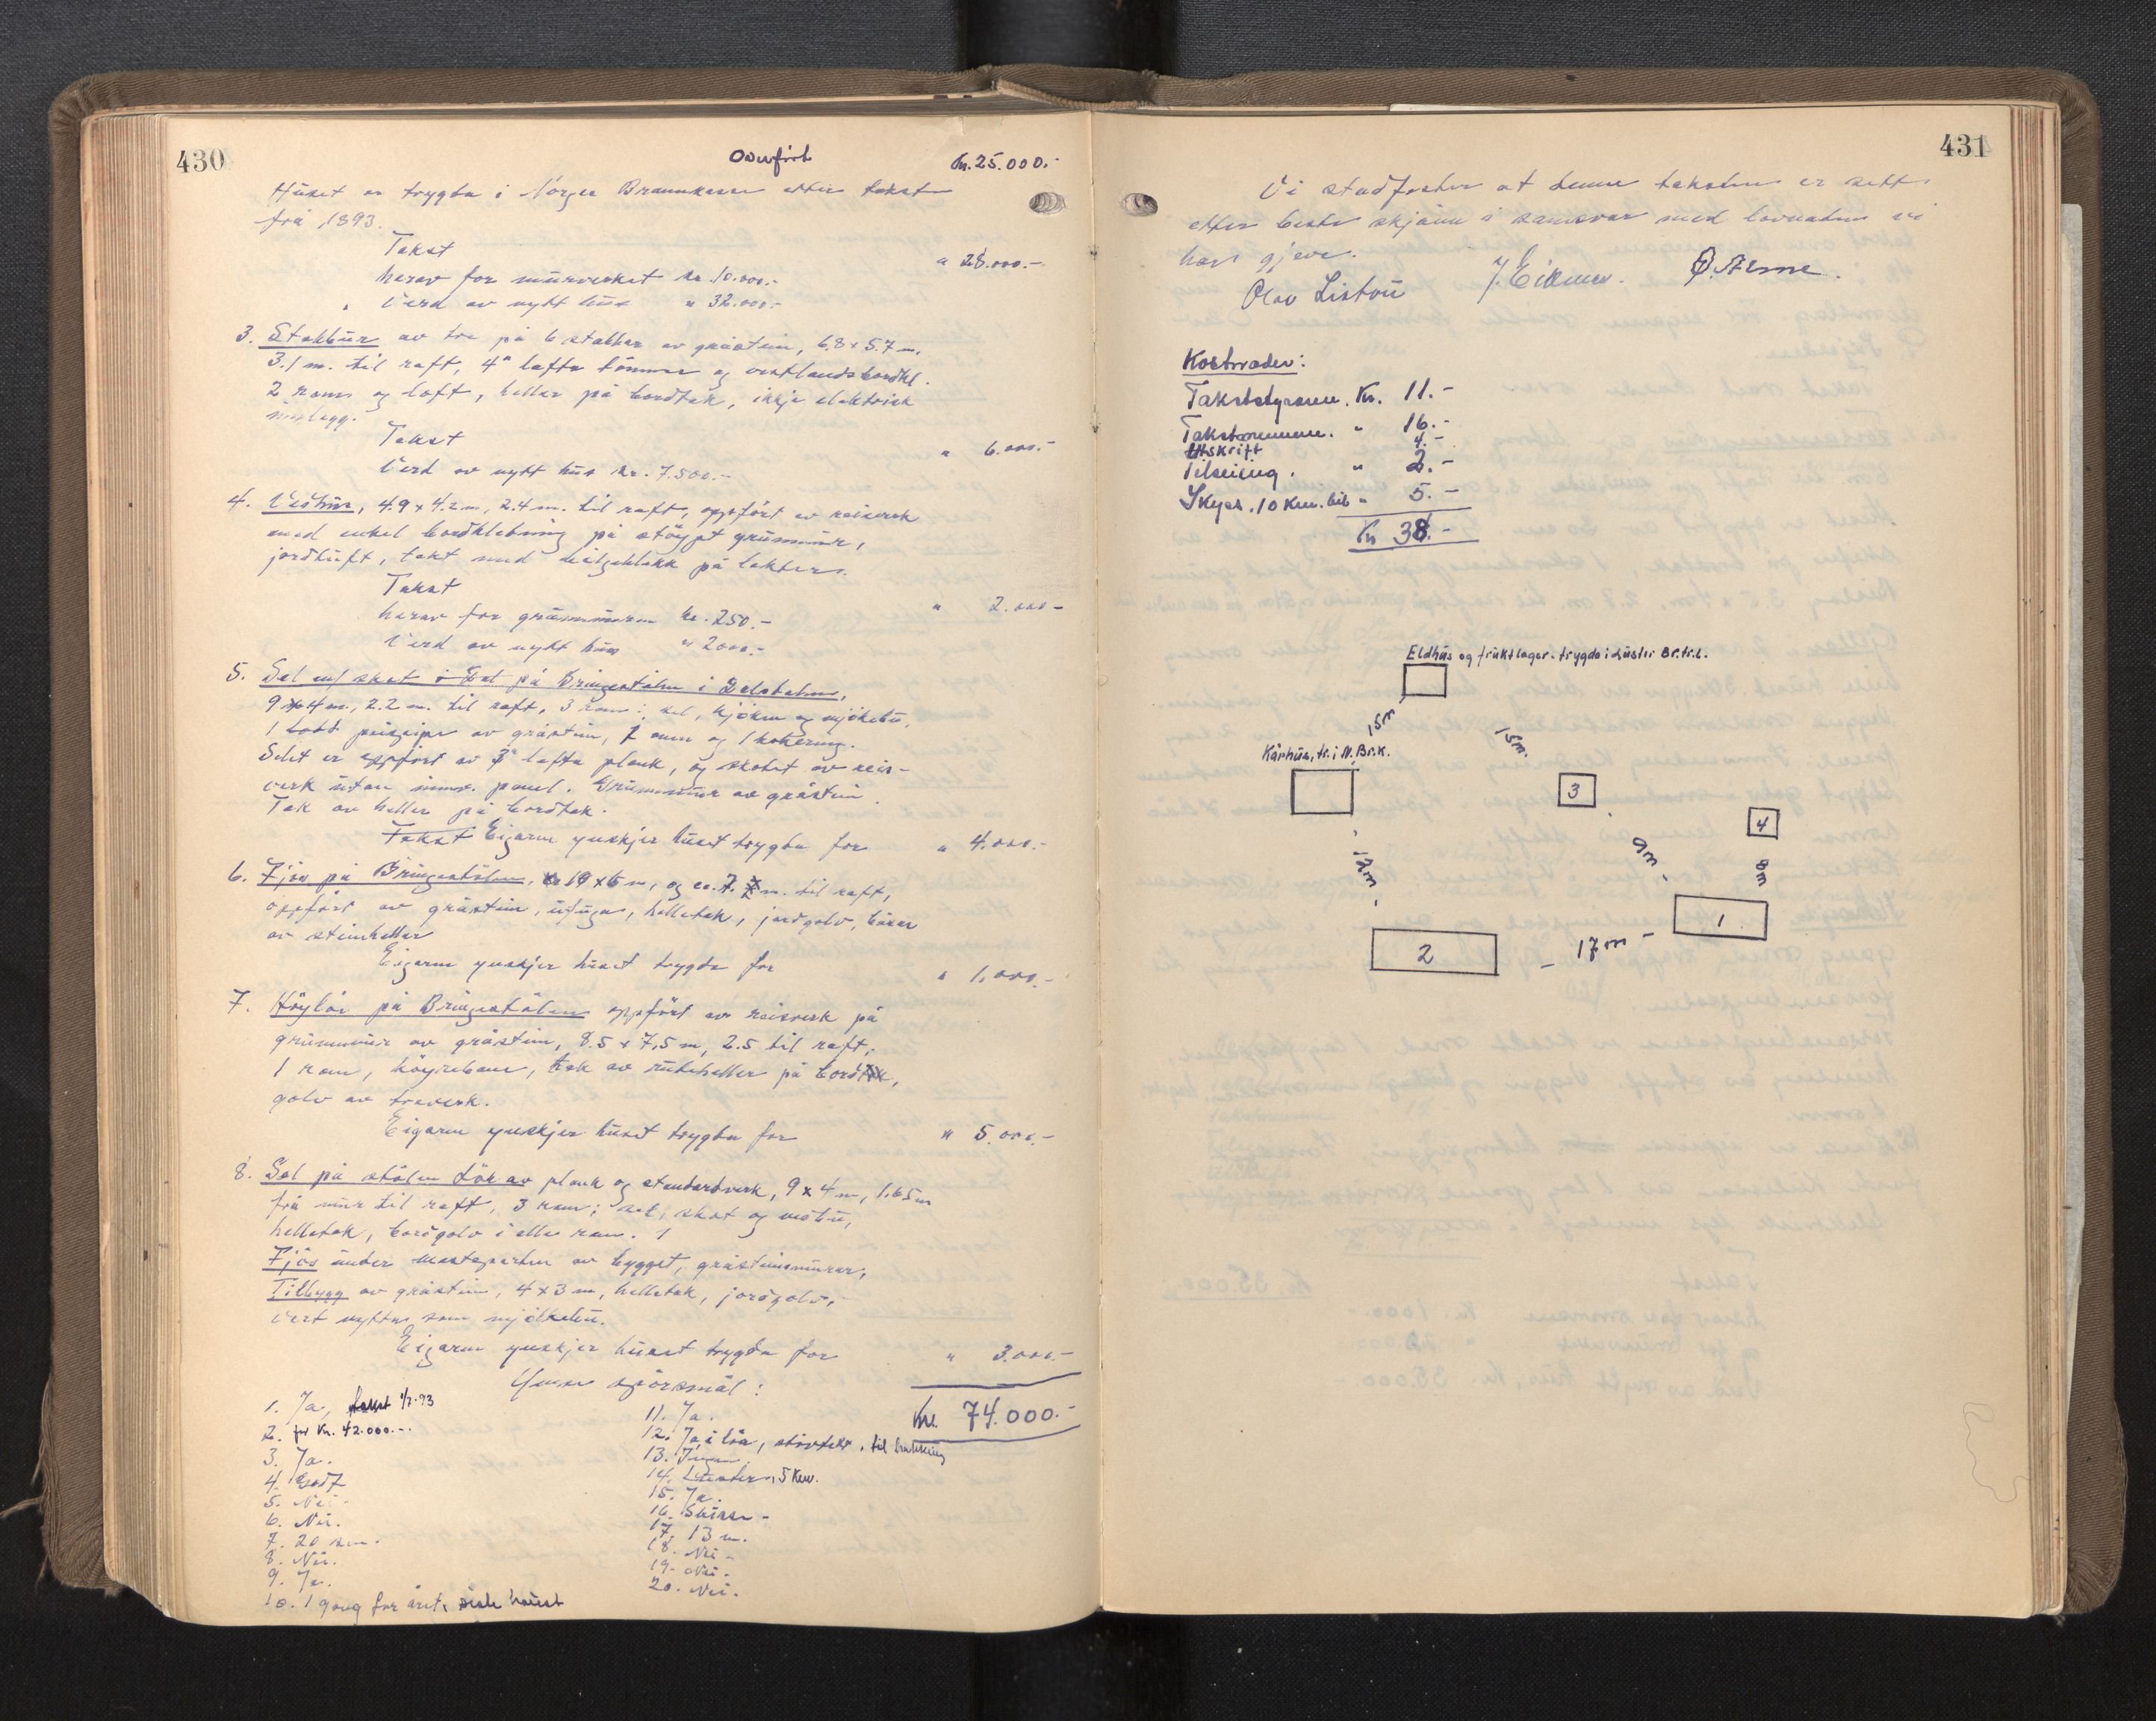 430
Overført Kr. 25.000.-
Huset er trygda i Norges Brannkasse etter takst
frå 1893.
Takst " 28.000.-
herav for murverket kr. 10.000.-
" Verd av nytt hus " 32.000.-
3. Stabbur av tre på 6 stabbar av gråstein, 6.8 x 5.7 m.
3.1 m. til raft, 4" lafta tømmer og vestlandsbordkl.
2 rom og loft, heller på bordtak, ikkje elektrisk
innlegg.
Takst " 6.000.-
Verd av nytt hus kr. 7.500.-
4. Vedhus, 4.9 x 4.2 m, 2.4 m. til raft, oppført av reisverk
med enkel bordkledning på støypt grunnmur,
jordtuft, tekt med bølgeblekk på lekter.
Takst " 2.000-
herav for grunnmuren kr. 250.-
Verd av nytt hus " 2000.-
5. Sel m/ skot på Bringestølen i
9 x 4 m., 2.2 m. til raft, 3 rom: sel, kjøken og mjølkebu,
1 peispipe av gråstein, 1 omn og 1 kokering.
Selet er oppført av 3" lafta plank, og skotet av reis-
verk utan innv. panel. Grunnmur av gråstein.
Tak av heller på bordtak.
Takst Eigaren ynskjer huset trygda for " 4.000.-
6. Fjøs på Bringestølen, 19 x 6 m, og ca. 2 m. til raft,
oppført av gråstein, helletak, jordgolv, båsar
av steinheller
Eigaren ynskjer huset trygda for " 1.000.-
7. Høyløe på Bringestølen oppført av reisverk på
grunnmur av gråstein, 8.5 x 7,5 m, 2.5 til raft,
1 rom, tak av ruteheller på bordtak,
golv av treverk.
Eigaren ynskjer huset trygda for " 5.000.-
8. Sel på stølen av plank og standardverk, 9 x 4 m, 1.65 m
frå mur til raft, 3 rom; sel, skot og
helletak, bordgolv i alle rom.
Fjøs under mesteparten av bygget, gråsteinsmurar,
Tilbygg av gråstein, 4 x 3 m, helletak, jordgolv,
vert nytta som mjølkebu.
Eigaren ynskjer huset trygda for " 3.000.-
Ymse spørsmål: Kr. 74.000.-
1. Ja, takst 1/7-93
2. for Kr. 42.000.-.
3. Ja.
4. Godt
5. Nei.
6. Nei.
7. 20 sm.
8. Nei.
9. Ja.
10. 1 gong for året, siste haust
11. Ja.
12. Ja, i løa, til hakking
13. Ingen
14. Luster, 5 km.
15. Ja.
16.
17. 13 m.
18. Nei -
19. Nei.
20. Nei.
431
Vi stadfester at denne taksten er sett
etter beste skjønn i samsvar med lovnaden vi
har gjeve.
Olav Listou
Kostnader:
Takststyraren. Kr. 11.-
Takstmennene. " 16.-
Utskrift 4.-
Tilseiing. " 2.-
Skyss. 10 km. bil " 5.-
Kr 38.-
Eldhus og fruktlager. trygda i Luster Br.tr.l.
15m
15m.
Kårhus, tr. i N. Br.K.
3
4
12m.
9m
8m
1
2
17m